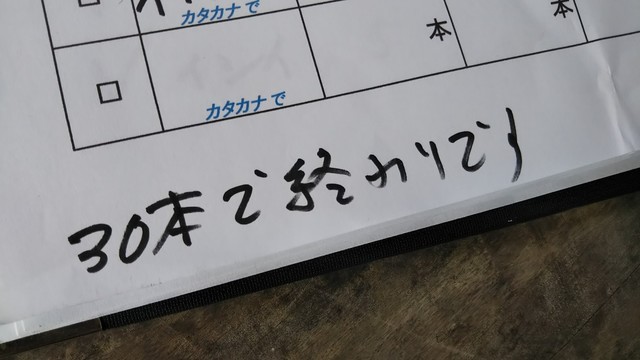 カタカナで
本
本
□
カタカナで
本
30本で終わりです